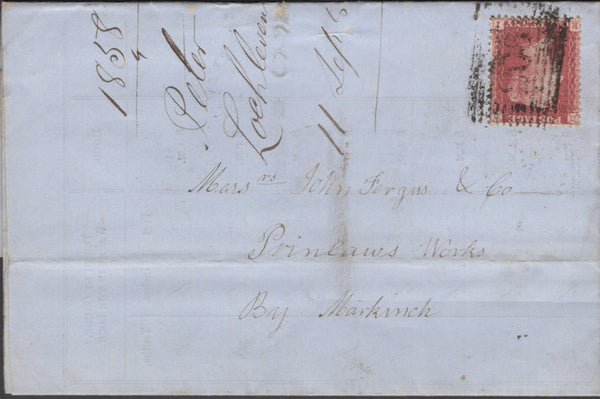 1858
Peter
Lochleven
11 Sept 6
POSTAGE
Mess rs John Fergus & Co
Prinlaws Works
By Markinch